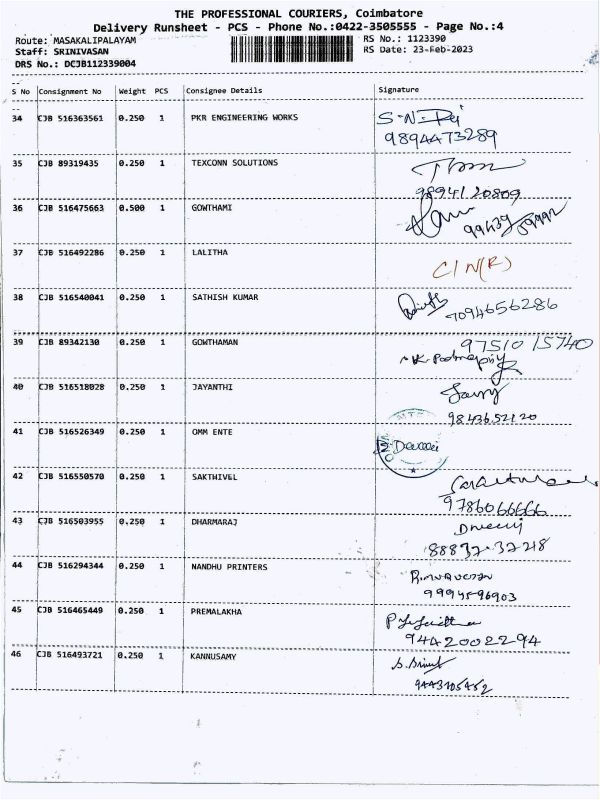 THE PROFESSIONAL COURIERS, Coimbatore
Delivery Runsheet - PCS - Phone No.:0422-3505555 - Page No.:4
Route: MASAKALIPALAYAM RS No.: 1123390
Staff: SRINIVASAN RS Date: 23-Feb-2023
DRS No.: DCJB112339004
S No Consignment No Weight PCS Consignee Details Signature
34 CJB 516363561 0.250 1 PKR ENGINEERING WORKS
9894473289
35 CJB 89319435 0.250 1 TEXCONN SOLUTIONS
98941 20809
36 CJB 516475663 0.500 1 GOWTHAMI
37 CJB 516492286 0.250 1 LALITHA
C/N(R)
38 CJB 516540041 0.250 1 SATHISH KUMAR
7094656286
39 CJB 89342130 0.250 1 GOWTHAMAN
97510 15740
40 CJB 516518028 0.250 1 JAYANTHI
9843652120
41 CJB 516526349 0.250 1 OMM ENTE
42 CJB 516550570 0.250 1 SAKTHIVEL
9786066666
43 CJB 516503955 0.250 1 DHARMARAJ
88832-32218
44 CJB 516294344 0.250 1 NANDHU PRINTERS
9994596903
45 CJB 516465449 0.250 1 PREMALAKHA
9442002294
46 CJB 516493721 0.250 1 KANNUSAMY
9443105452